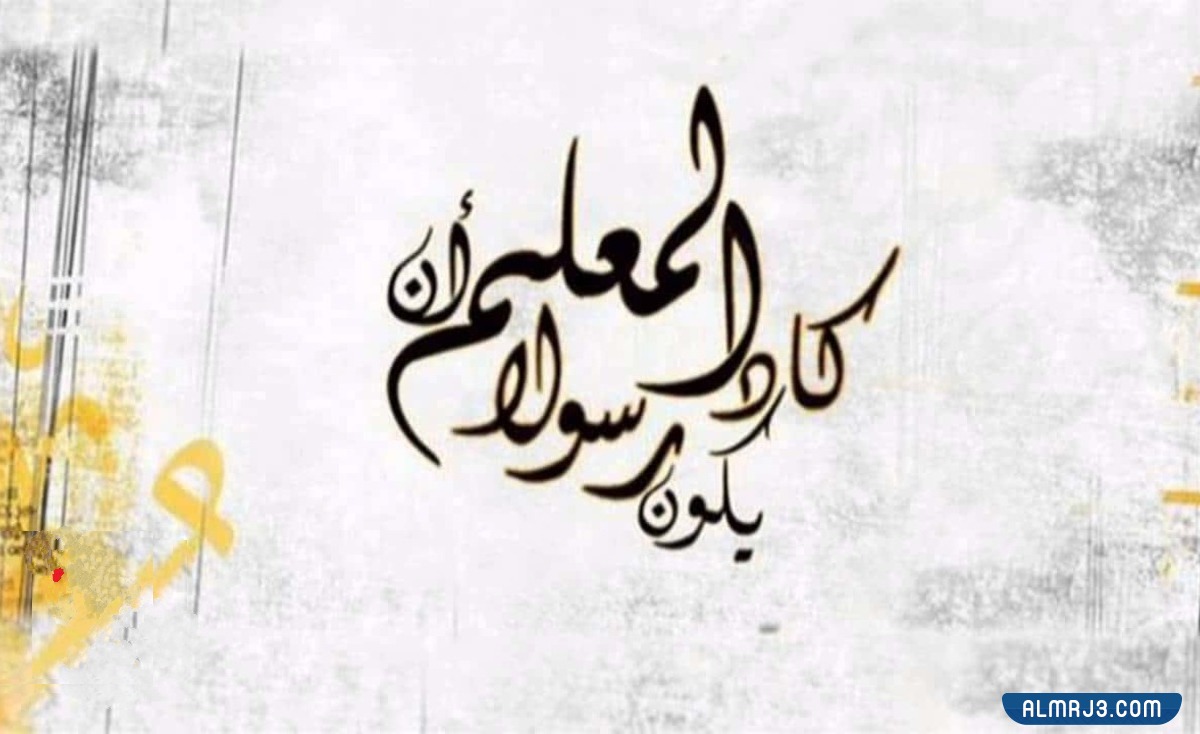 كاد المعلم أن
يكون رسولا
ALMRJ3.COM